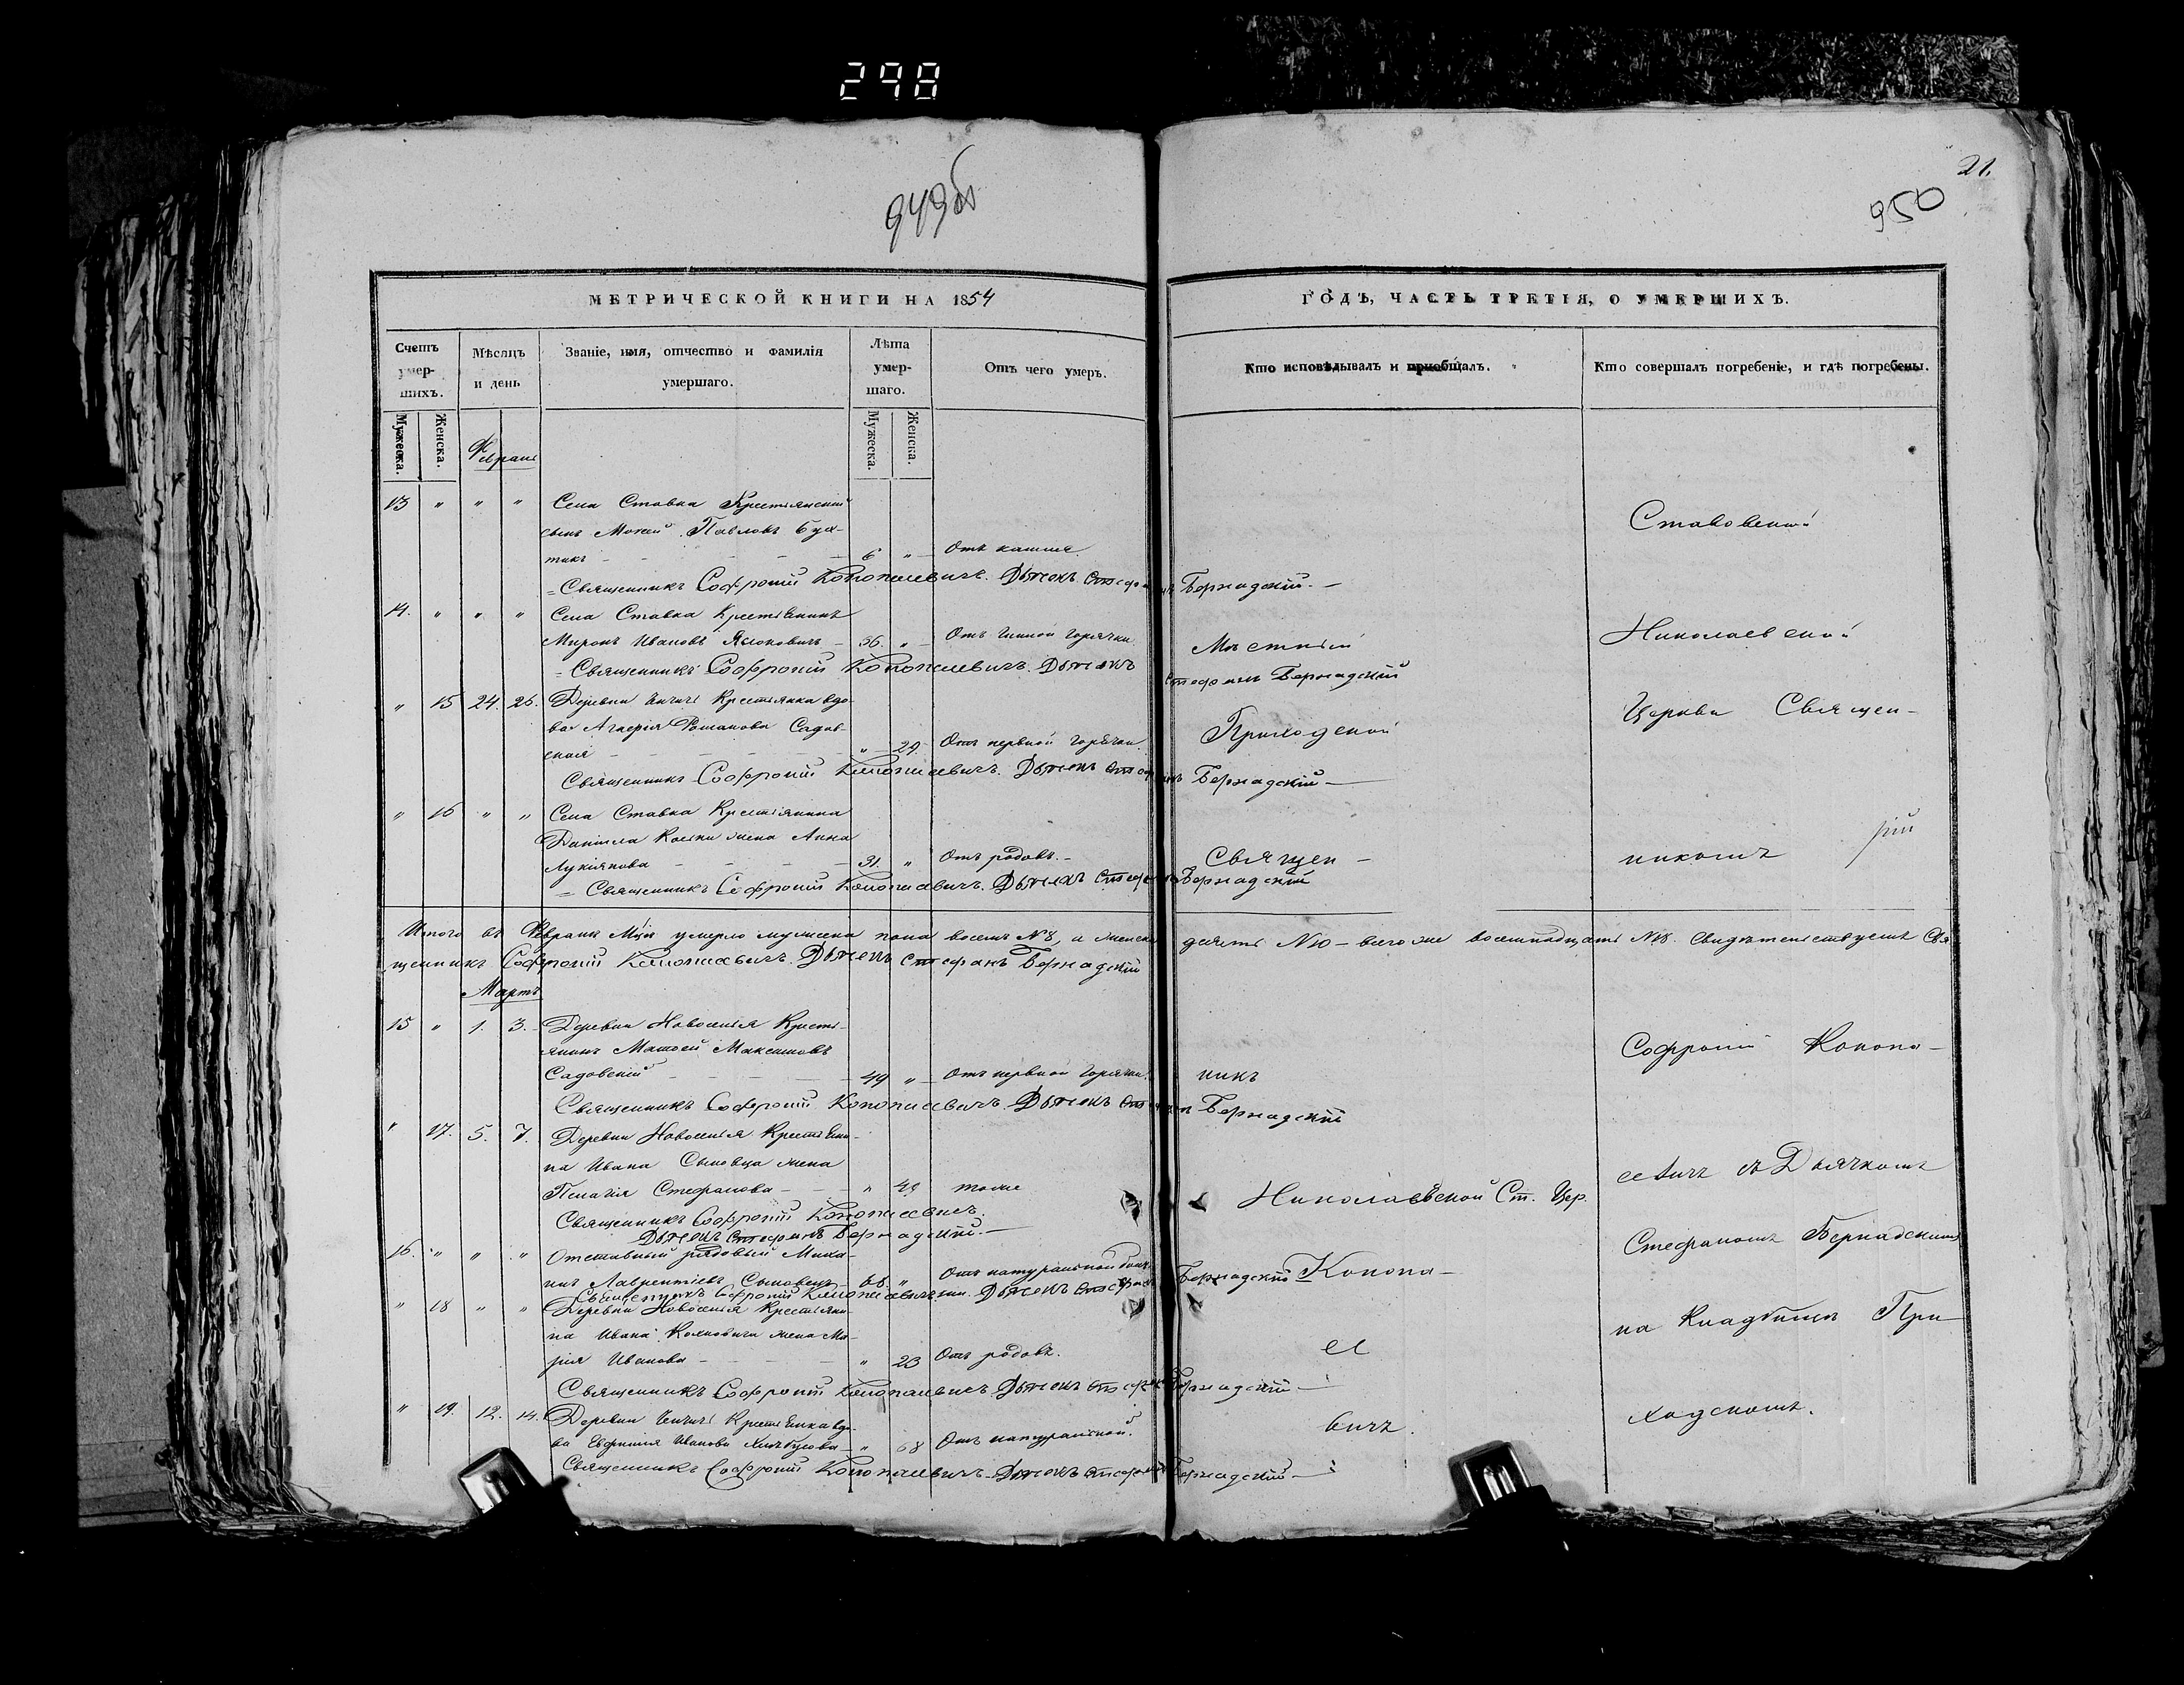 298
949об
21.
950
МЕТРИЧЕСКОЙ КНИГИ НА 1854
ГОДЪ, ЧАСТЬ ТРЕТІЯ, О УМЕРШИХЪ.
Счетъ умер-шихъ.
Мѣсяцъ и день
Званіе, имя, отчество и фамилія умершаго.
Лѣта умер-шаго.
Отъ чего умеръ.
Кто исповѣдывалъ и приобщалъ.
Кто совершалъ погребеніе, и гдѣ погребены.
Мужеска.
Женска.
Мужеска.
Женска.
13 " " " Села Ставка Крестьянскій
сынъ Мокей Павловъ
тикъ 6 " Отъ кашля
Ставовской
Священникъ Софроній Конопасевичъ. Дьячекъ Стефанъ Бернадскій.
14. " " " Села Ставка Крестьянинъ
Миронъ Ивановъ 36. " Отъ горячки
Мѣстный
Николаевской
Священникъ Софроній Конопасевичъ. Дьячекъ Стефанъ Бернадскій
" 15 24. 26. Деревни Крестьянка вдо-
ва Романова Садов-
ская " 29. Отъ нервной горячки.
Приходской
Церкви Священ-
Священникъ Софроній Конопасевичъ. Дьячекъ Стефанъ Бернадскій
" 16 " " Села Ставка Крестьянина
Даніила жена Анна
Лукіянова 31. " Отъ родовъ.
Священ-
никомъ
Священникъ Софроній Конопасевичъ. Дьячекъ Стефанъ Бернадскій
Итого въ Февралѣ Мцѣ умерло мужеска пола восемь №8, а женска десять №10 - всего же восемнадцать №18. Свидѣтельствуемъ Свя
щенникъ Софроній Конопасевичъ. Дьячекъ Стефанъ Бернадскій
Мартъ
15 " 1. 3. Деревни Новоселія Кресть-
янинъ Матвей Максимовъ
Садовскій 49 " Отъ нервной горячки.
никъ
Софроній Конопа-
Священникъ Софроній Конопасевичъ. Дьячекъ Стефанъ Бернадскій
" 17. 5. 7. Деревни Новоселія Крестьяни-
на Ивана Сыновца жена
Пелагія Стефанова " тоже
Николаевской Ст. Цер.
севичъ съ Дьячкомъ
Священникъ Софроній Конопасевичъ.
Дьячекъ Стефанъ Бернадскій.
16. " " " Отставный рядовый
Лаврентіевъ Сыновецъ 68. " Отъ натуральной
Конопа-
Стефаномъ Бернадскимъ
Священникъ Софроній Конопасевичъ. Дьячекъ Стефанъ Бернадскій
" 18 " " Деревни Новоселія Крестьяни-
на Ивана жена Ма-
рія Иванова " 23 Отъ родовъ.
се
на Кладбищѣ При
Священникъ Софроній Конопасевичъ. Дьячекъ Стефанъ Бернадскій
" 19. 12. 14. Деревни Крестьянка вдо-
ва Евфимія Иванова " 68 Отъ натуральной.
вичъ.
ходскомъ.
Священникъ Софроній Конопасевичъ. Дьячекъ Стефанъ Бернадскій